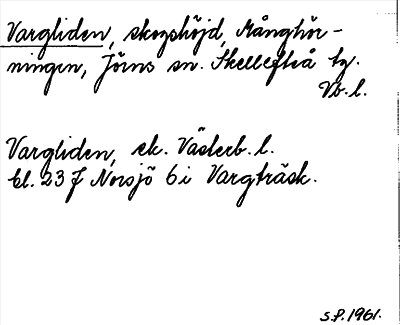 Vargliden, skogshöjd, Månghör-
ningen, Jörns sn. Skellefteå tg.
Vb. l.
Vargliden, ek. Västerb. l.
bl. 23 J Norsjö 6 i Vargträsk.
S.P. 1961.